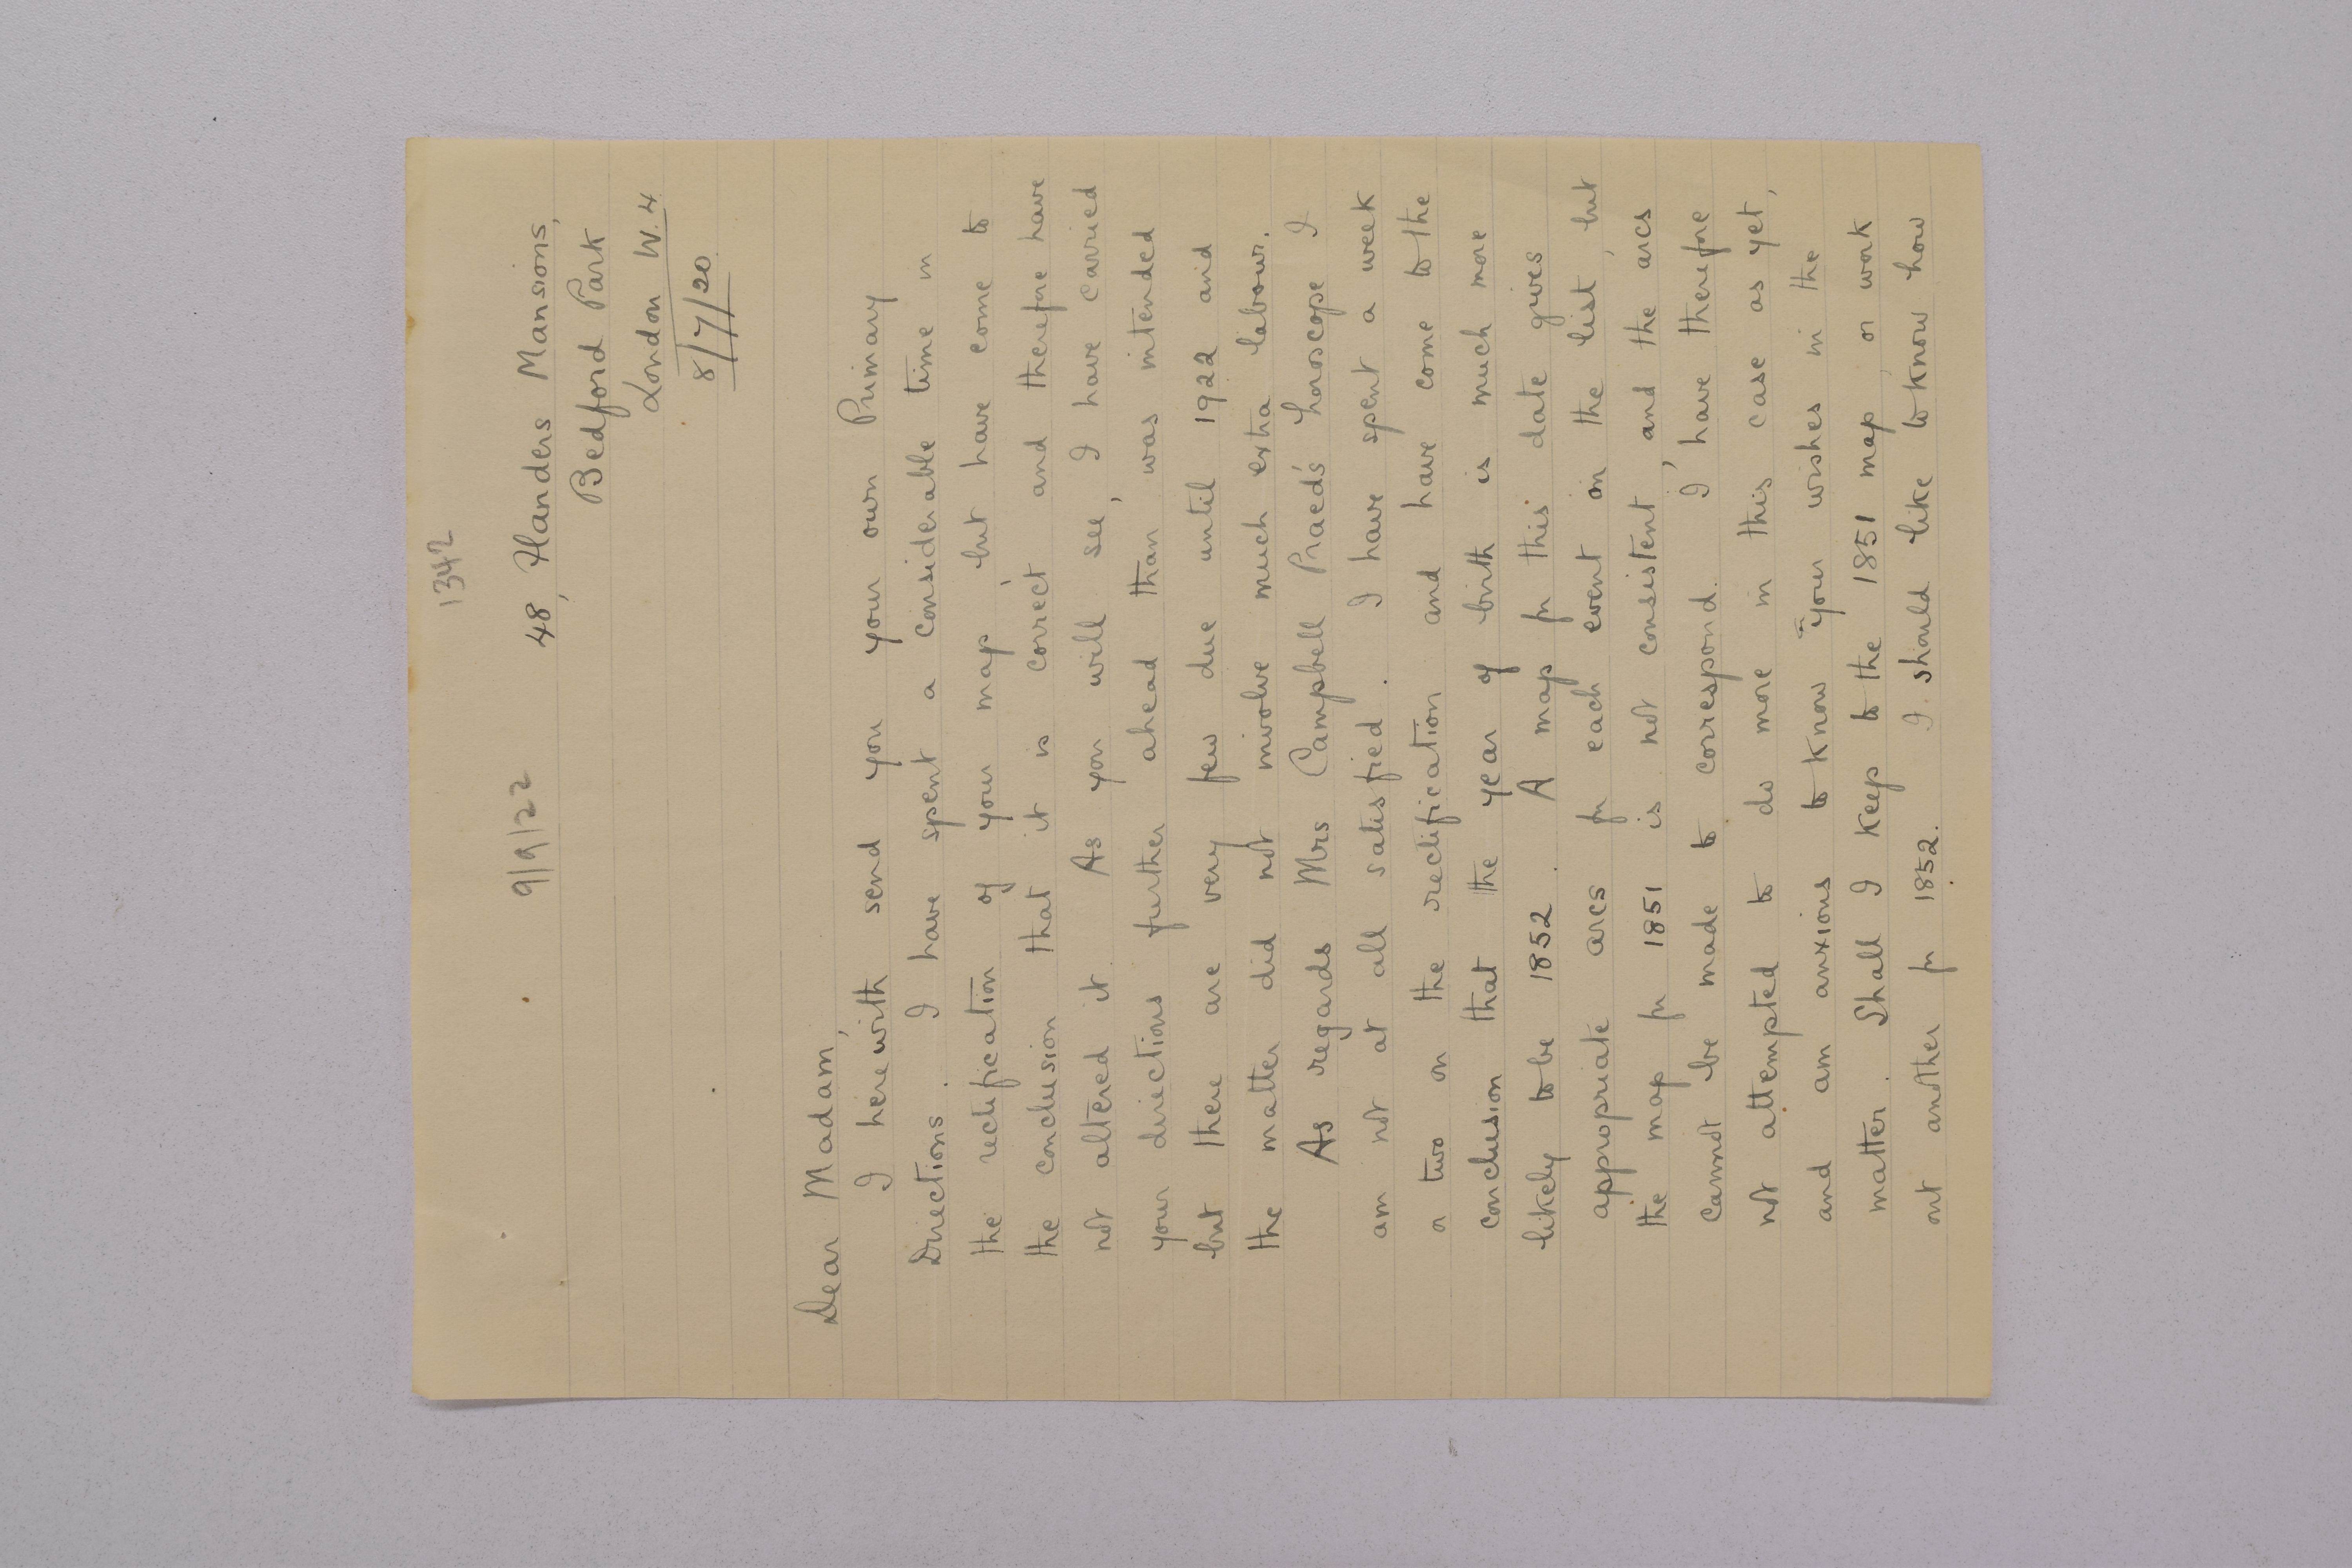 1342
9/9/22
48, Flanders Mansions,
Bedford Park
London W. 4
8/7/20.
Dear Madam,
I herewith send you your own Primary
Directions. I have spent a considerable time in
the rectification of your map, but have come to
the conclusion that it is correct and therefore have
not altered it. As you will see, I have carried
your directions further ahead than was intended
but there are very few due until 1922 and
the matter did not involve much extra labour.
As regards Mrs Campbell Praed's horoscope I
am not at all satisfied. I have spent a week
or two on the rectification and have come to the
conclusion that the year of birth is much more
likely to be 1852. A map for this date gives
appropriate arcs for each event on the list, but
the map for 1851 is not consistent, and the arcs
cannot be made to correspond. I have therefore
not attempted to do more in this case as yet,
and am anxious to know your wishes in the
matter. Shall I keep to the 1851 map, or work
out another for 1852. I should like to know how